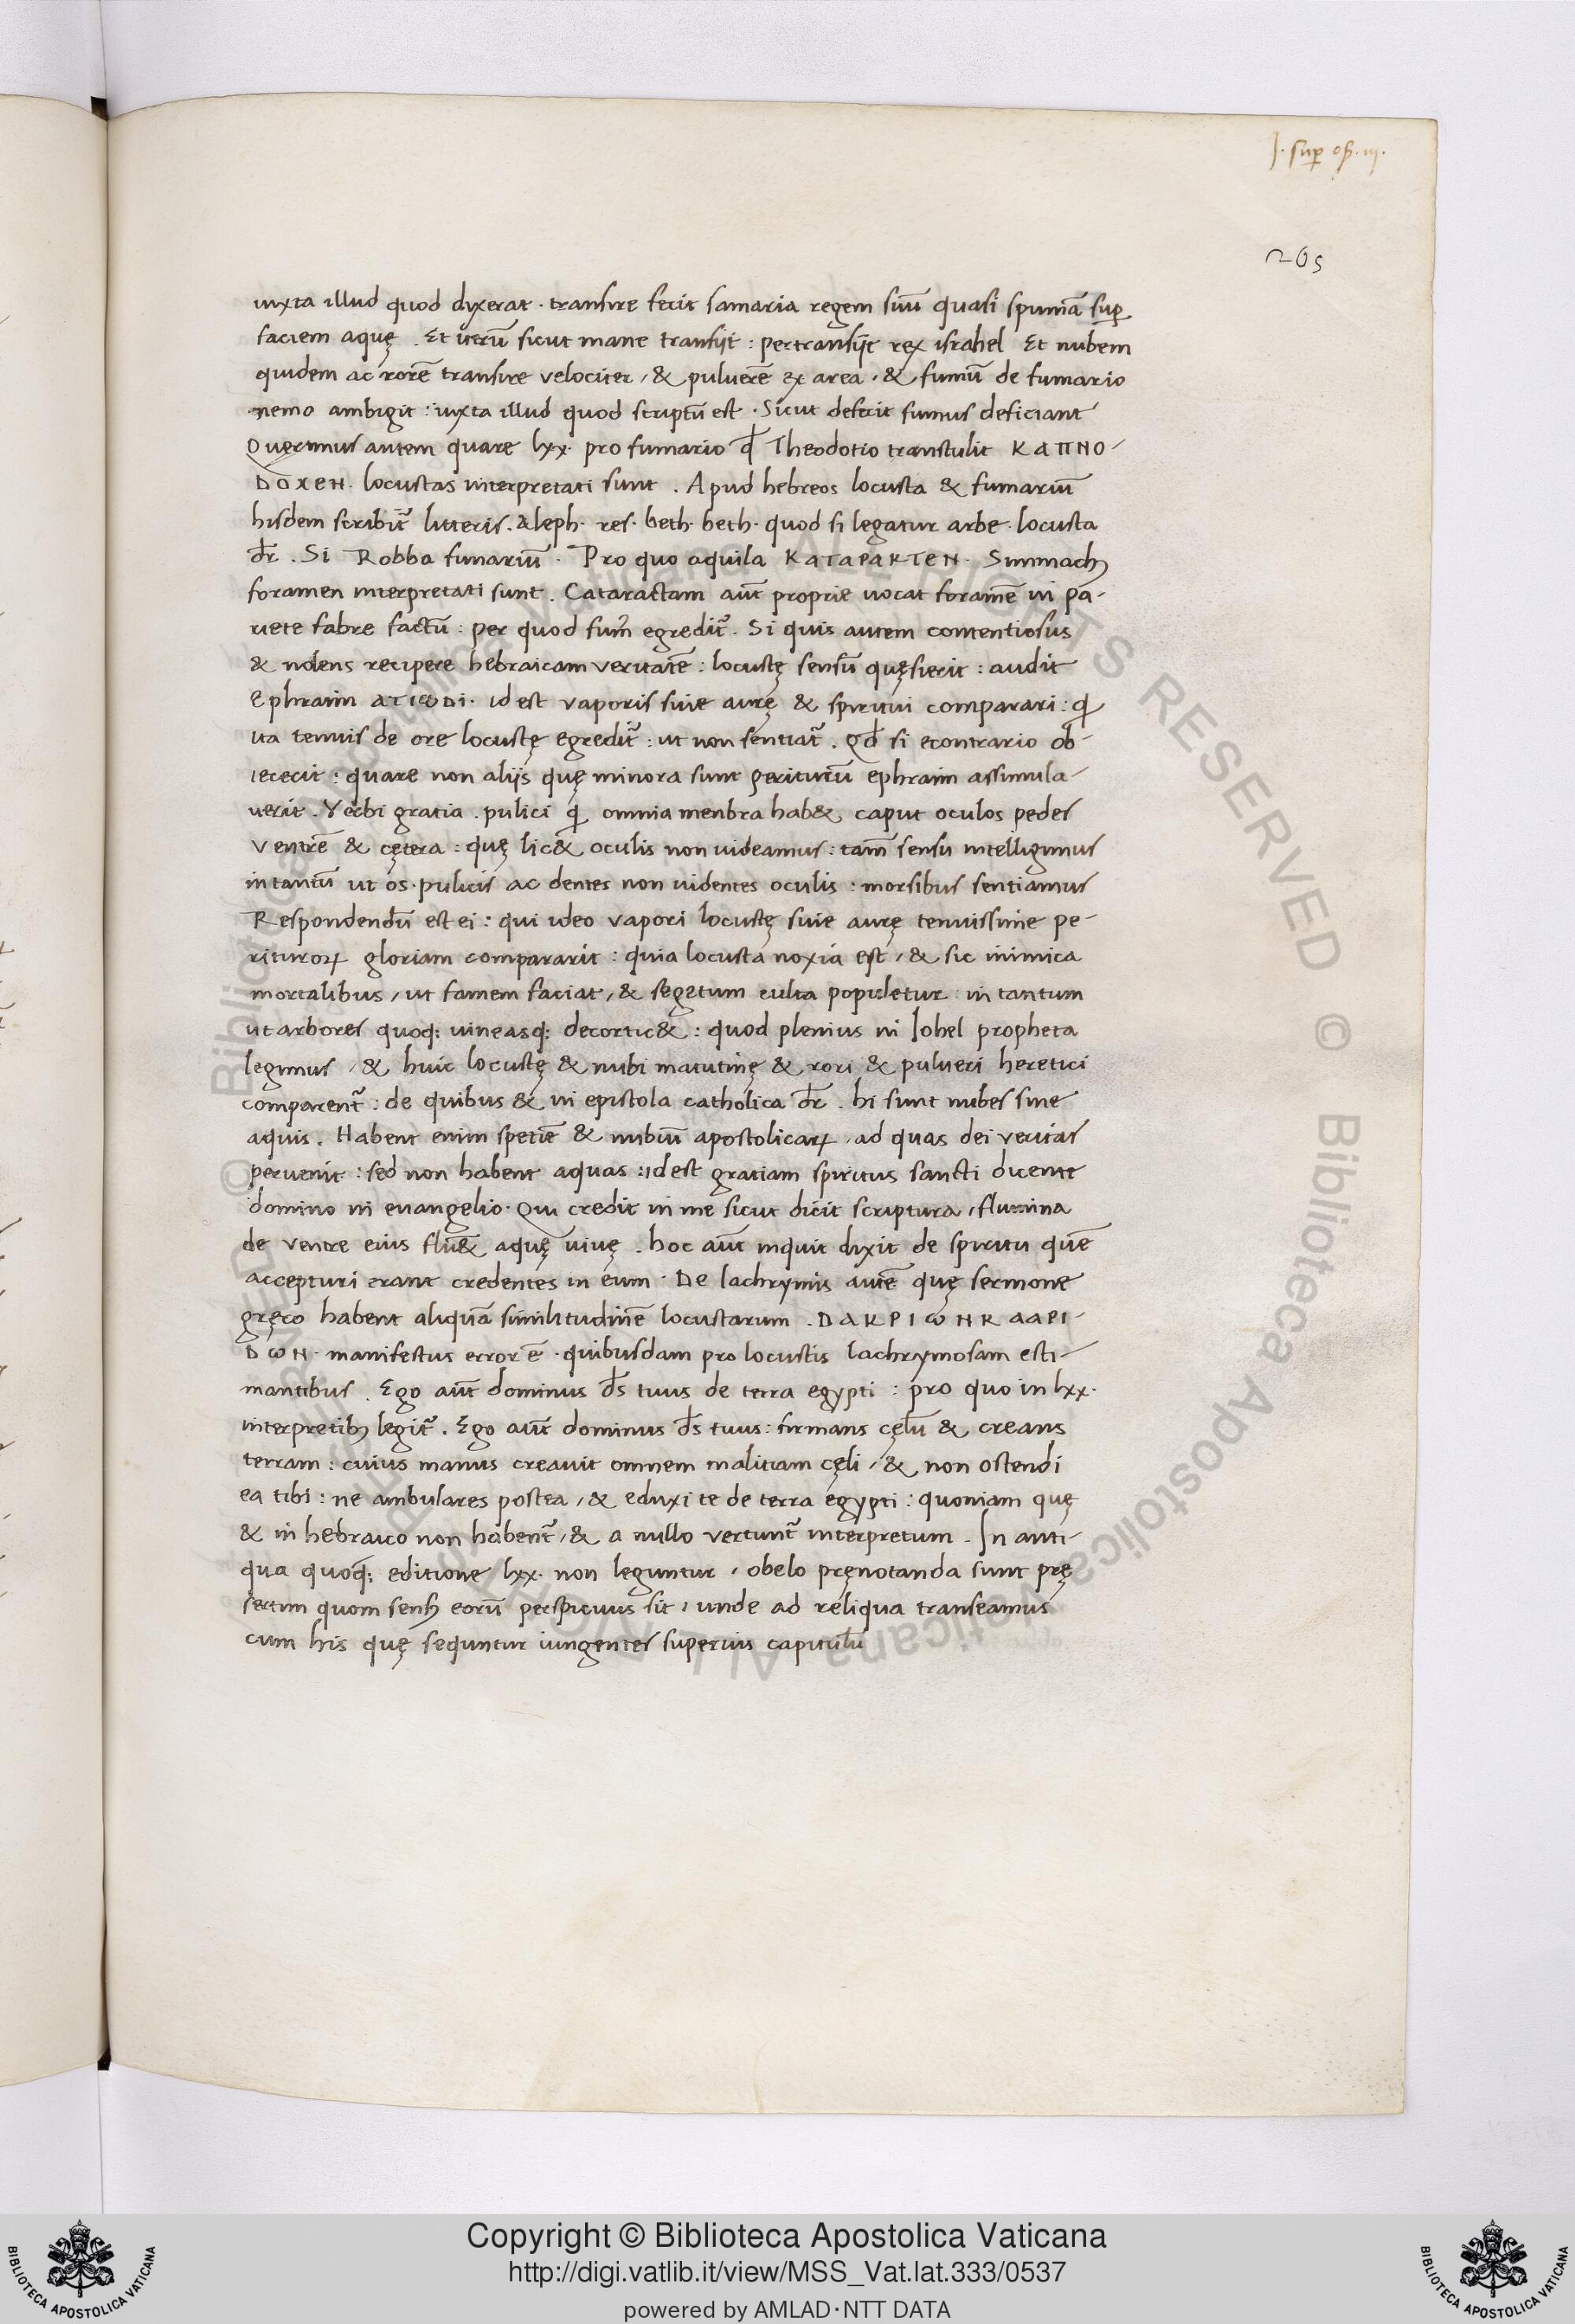 J. sup os. iij.
265
iuxta illud quod dyxerat · transire fecit samaria regem suū quasi spumā sup
faciem aquę . Et iterū sicut mane transijt : pertransijt rex israhel Et nubem
quidem ac rorē transire velociter , & puluerē ex area , & fumū de fumario
nemo ambigit : iuxta illud quod scriptū est · Sicut deficit fumus deficiant
Querimus autem quare lxx· pro fumario qđ Theodotio transtulit ΚΑΠΝΟ-
DOXEN · locustas interpretati sunt . Apud hebreos locusta & fumariū
hisdem scribit̄ litteris . aleph · res · beth · beth · quod si legatur arbe · locusta
dr̄ . Si Robba fumariū · Pro quo aquila ΚΑΤΑΡΑΚΤΕΝ · Simmachꝰ
foramen interpretati sunt . Cataractam aut̄ proprie uocat foramē in pa-
riete fabre factū : per quod fum̄ egredit̄ . Si quis autem contentiosus
& nolens recipere hebraicam veritatē : locustę sensū quęsierit : audit
Ephraim ΑΤΙωDI · id est vaporis siue aurę & spiritui comparari : q̄
ita tenuis de ore locustę egredit̄ : ut non sentiat̄ . qđ si econtrario ob-
iecerit : quare non alijs quę minora sunt periturū ephraim assimula-
uerit . Verbi gratia . pulici q̄ omnia menbra hab& caput oculos pedes
ventrē & cętera : quę lic& oculis non uideamus : tam̄ sensu intelligimus
in tantū ut os · pulicis ac dentes non uidentes oculis : morsibus sentiamus
Respondendū est ei : qui ideo vapori locustę siue aurę tenuissime pe-
riturorꝝ gloriam compararit : quia locusta noxia est , & sic inimica
mortalibus , ut famem faciat , & segetum culta populetur : in tantum
ut arbores quoq; uineasq; decortic& : quod plenius in Johel propheta
legimus , & huic locustę & nubi matutinę & rori & pulueri heretici
comparent̄ : de quibus & in epistola catholica dr̄ . hi sunt nubes sine
aquis . Habent enim spetiē & nubiū apostolicarꝝ , ad quas dei veritas
peruenit : sed non habent aquas : idest gratiam spiritus sancti dicente
domino in euangelio · Qui credit in me sicut dicit scriptura , flumina
de ventre eius flu& aquę uiuę . hoc aut̄ inquit dyxit de spiritu quē
accepturi erant credentes in eum · De lachrymis autē quę sermone
gręco habent aliquā similitudinē locustarum . DAKPIωNKAAPI-
DωN · manifestus error ē · quibusdam pro locustis lachrymosam esti-
mantibus . Ego aut̄ dominus d̄s tuus de terra egypti : pro quo in lxx·
interpretibꝰ legit̄ . Ego aut̄ dominus d̄s tuus : firmans cęlū & creans
terram : cuius manus creauit omnem malitiam cęli , & non ostendi
ea tibi : ne ambulares postea , & eduxi te de terra egypti : quoniam quę
& in hebraico non habent̄ , & a nullo vertunt̄ interpretum . In anti-
qua quoq; editione lxx· non leguntur , obelo pręnotanda sunt prę
sertim quom sensꝰ eorū perspicuus sit , unde ad reliqua transeamus
cum his quę sequntur iungentes superius capitulū
© Biblioteca Apostolica Vaticana ALL RIGHTS RESERVED © Biblioteca Apostolica Vaticana
BIBLIOTECA APOSTOLICA VATICANA
Copyright © Biblioteca Apostolica Vaticana
http://digi.vatlib.it/view/MSS_Vat.lat.333/0537
powered by AMLAD·NTT DATA
BIBLIOTECA APOSTOLICA VATICANA